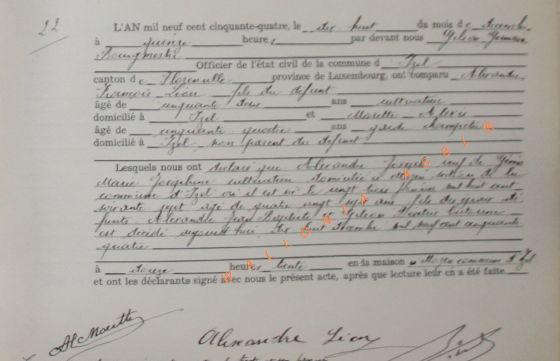 22
L'AN mil neuf cent cinquante-quatre, le dix huit du mois de décembre
à quinze heures, par devant nous Gilson Germain
Bourgmestre
Officier de l'état civil de la commune d Izel
canton de Florenville province de Luxembourg, ont comparu Alexandre
François Léon fils du défunt
âgé de cinquante deux ans cultivateur
domicilié à Izel et Mouette Alexis
âgé de cinquante quatre ans garde champêtre
domicilié à Izel non parent du défunt
Lesquels nous ont déclaré que Alexandre Joseph, veuf de
Marie Joséphine cultivateur domicilié à Moyen section de la
commune d'Izel où il est né le vingt trois mil huit cent
soixante sept âgé de quatre vingt sept ans fils des époux dé
funts Alexandre Jean Baptiste et Gilson
est décédé aujourd'hui dix huit décembre mil neuf cent cinquante
quatre
à douze heures trente en sa maison à Moyen commune d'Izel
et ont les déclarants signé avec nous le présent acte, après que lecture leur en a été faite
Al Mouette
Alexandre Léon